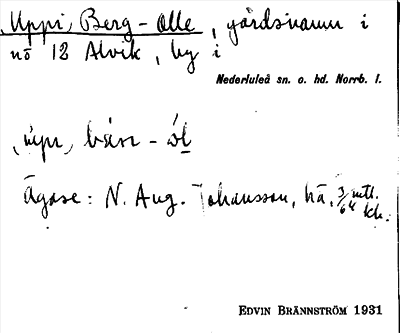 Uppi, Berg-Olle, gårdsnamn i
nō 12 Alvik, by i
Nederluleå sn. o. hd. Norrb. l.
Ägare: N. Aug. Johansson, hä, 3/64 mtl.
kh.
EDVIN BRÄNNSTRÖM 1931